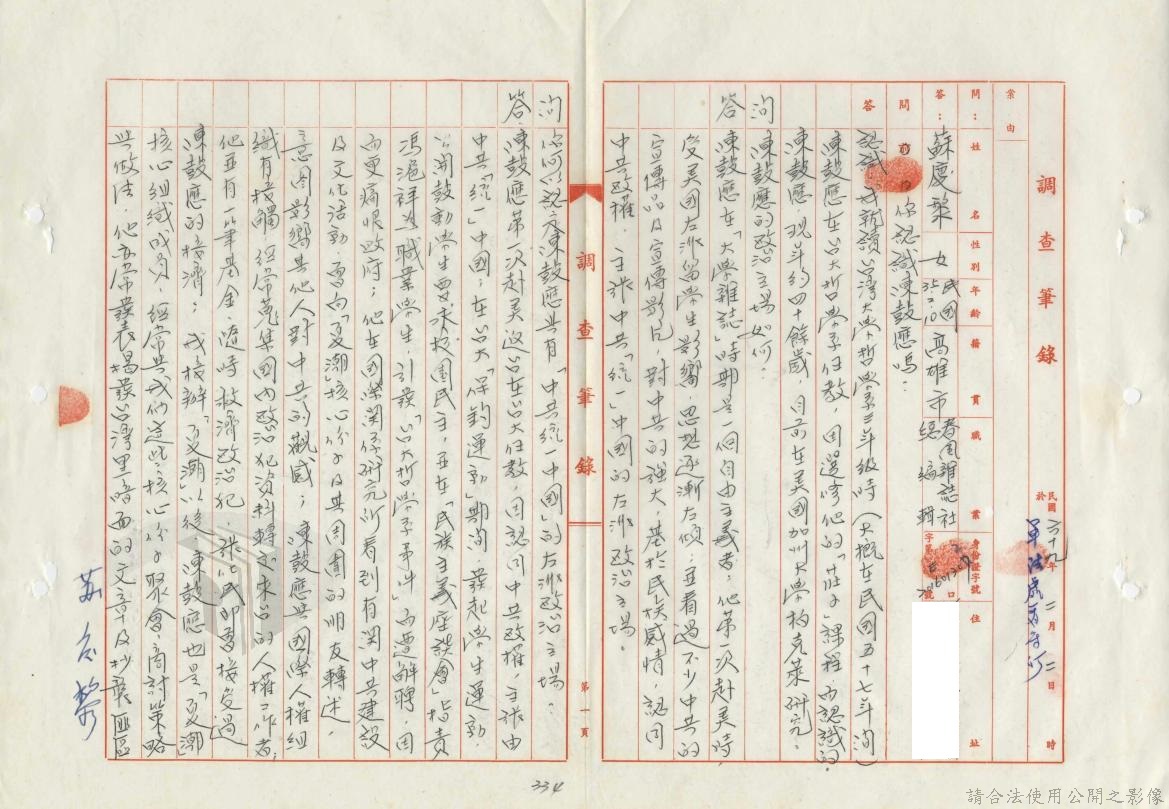 調查筆錄
案由
民國六十九年二月二日 時
於軍法處看守所
問：姓名 性別 年齡 籍貫 職業 身份證字號 住址
答：蘇慶黎 女 民國35.2.10 高雄市 春風雜誌社總編輯 字第 號
問 你認識陳鼓應嗎：
答 認識。我就讀台灣大學哲學系三年級時（大概在民國五十七年間）
陳鼓應在台大哲學系任教，因選修他的「莊子」課程而認識的，
陳鼓應，現年約四十餘歲，目前在美國加州大學柏克萊研究。
問 陳鼓應的政治立場如何：
答 陳鼓應在「大學雜誌」時期是一個自由主義者，他第一次赴美時，
受美國左派留學生影響，思想逐漸左傾，並看過不少中共的
宣傳品及宣傳影片，對中共的強大，基於民族感情，認同
中共政權，主張中共「統一」中國的左派政治立場。
問 你何以認定陳鼓應具有「中共統一中國」的左派政治立場：
答 陳鼓應第一次赴美返台在台大任教，因認同中共政權，主張由
中共「統一」中國；在台大「保釣運動」期間，發起學生運動，
公開鼓動學生要求校園民主，並在「民族主義座談會」指責
馮滬祥為職業學生，引發「台大哲學系事件」而遭解聘，因
而更痛恨政府；他在國際關係研究所看到有關中共建設
及文化活動，曾向「夏潮」核心份子及其周圍的朋友轉述，
意圖影響其他人對中共的觀感；陳鼓應與國際人權組
織有接觸，經常蒐集國內政治犯資料轉交來台的人權工作者；
他並有一筆基金，隨時救濟政治犯，張化民即曾接受過
陳鼓應的接濟；我接辦「夏潮」以後，陳鼓應也是「夏潮」
核心組織成員，經常與我們這些核心份子聚會，商討策略
與做法，他亦常發表揭發台灣黑暗面的文章及抄襲匪區
調查筆錄
第一頁
蘇慶黎
334
請合法使用公開之影像